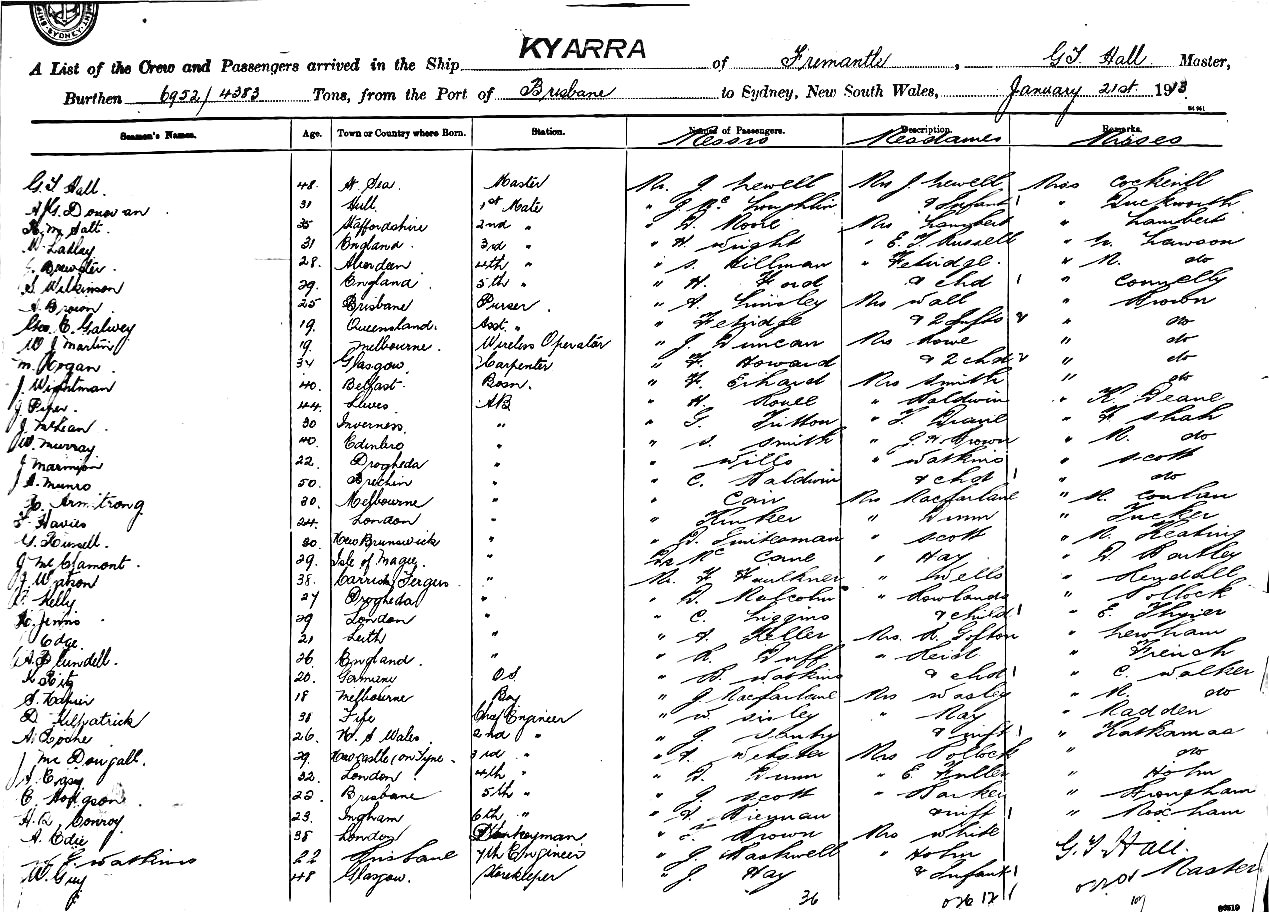 SYDNEY
KYARRA
A List of the Crew and Passengers arrived in the Ship KYARRA of Fremantle, G.T. Hall Master,
Burthen 6952/4383 Tons, from the Port of Brisbane to Sydney, New South Wales, January 21st 1913
Seamen's Names. Age. Town or Country where Born. Station. Names of Passengers. Description. Remarks.
Messrs Mesdames Misses
G T Hall. 48. N. Sea. Master Mr. J Newell Mrs J Newell Miss Cockerill
A G Donovan 31 Hull. 1st Mate " J Mc Loughlin & Infant 1 " Duckworth
H M Salt. 35 Staffordshire 2nd " " D Moore Mrs Lambert " Lambert
W. Lathay 31 England. 3rd " " H Wright " E J Russell " W. Lawson
G Brewster. 28. Aberdeen 4th " " S. Hillman " Fetridge. " N. do
S Wilkinson 29. England 5th " " H. Ford & chd 1 " Connelly
A Brown. 25 Brisbane Purser " A Linsley Mrs Wall " Brown
Geo. E. Galwey 19. Queensland. Asst. " " Fetridge & 2 Infts 2 " do
W J Martin 19. Melbourne. Wireless Operator " J. Duncan Mrs Howe " do
M. Hogan. 34 Glasgow. Carpenter " F. Howard & 2 chd 2 " do
J. Wightman 40. Belfast. Bosn. " F. Erhard Mrs Smith " do
J Piper. 44. Lewes AB " H. Rouse " Baldwin " K. Deane
J McLean. 30 Inverness. " " G. Fritton " T. Deane " F Shah
W. Murray 40. Edinbro " " S. Smith " J. H Brown " N. do
J Marmion 22. Drogheda " " Wills " Watkins " Scott
J A. Munro 50. Brechin " " C. Baldwin & chd 1 " do
H. Armstrong 30. Melbourne " " Carr Mrs Macfarlane " M. Conlan
F. Davies 24. London " " Kinker " Dunn " Tucker
G. Russell. 30. New Brunswick " " D. Smikeman " Scott " N. Keating
J Mc Clamont. 29. Isle of Magee. " Dr Mc Cane " Hay " D Bartley
J Watson 38. Carrick Fergus " Mr. F. Faulkner " Wells " Kendall
P. Kelly 27 Drogheda " " D. Malcolm " Rowlands " Pollock
H. Jenns 29 London " " C. Liggins & child 1 " E. Thrier
Edge. 21 Leith " " A. Feller Mrs. R. Gofton " Newham
A. Blundell. 26. England. " " R. Duff " Reid " French
K Fitz 20. Germany O.S. " B. Watkins & chd 1 " C. Walker
S. Napier 18 Melbourne Boy " J Macfarlane Mrs Wasley " N. do
D. Kilpatrick 38 Fife Chief Engineer " W. Sisley " Ray " Madden
A. Roche 26. N. S Wales. 2nd " " G Danby & Inft 1 " Kathamaa
J Mc Dougall. 29. Newcastle on Tyne. 3rd " " A. Webster Mrs Pollock " do
A. Craig 32. London 4th " " D. Dunn " E. Fuller " Hohn
C. Hodgson 23. Brisbane 5th " " J. Scott " Barker " Frongham
A. R. Conroy 23. Ingham 6th " " H. Rieman & Inft 1 " Roxham
A. Edie 38 London Donkeyman " C. Brown Mrs White
W. F. Watkins 22 Brisbane 7th Engineer " J. Maskwell " Hohn G.T. Hall.
W. Guy 48 Glasgow. Storekeeper " J. Hay & Infant 1 Master
36 26 12 107